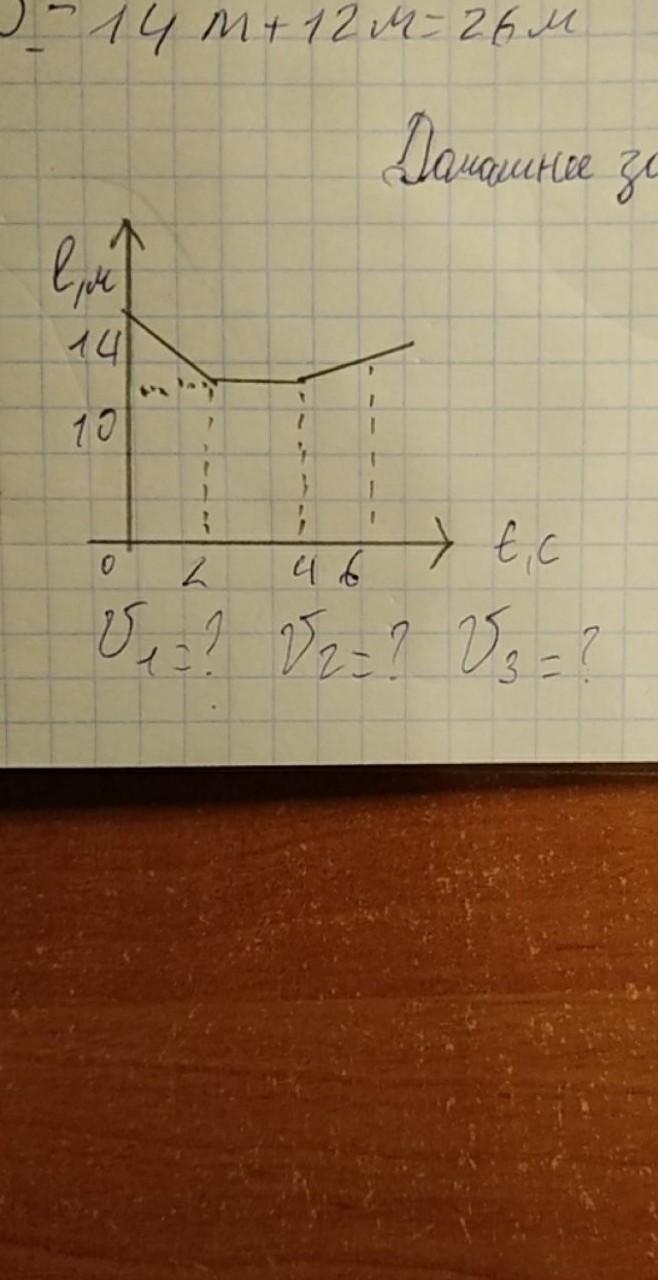 = 14 м + 12 м = 26 м
Домашнее
l, м
14
10
0 2 4 6 t, c
V₁ = ? V₂ = ? V₃ = ?